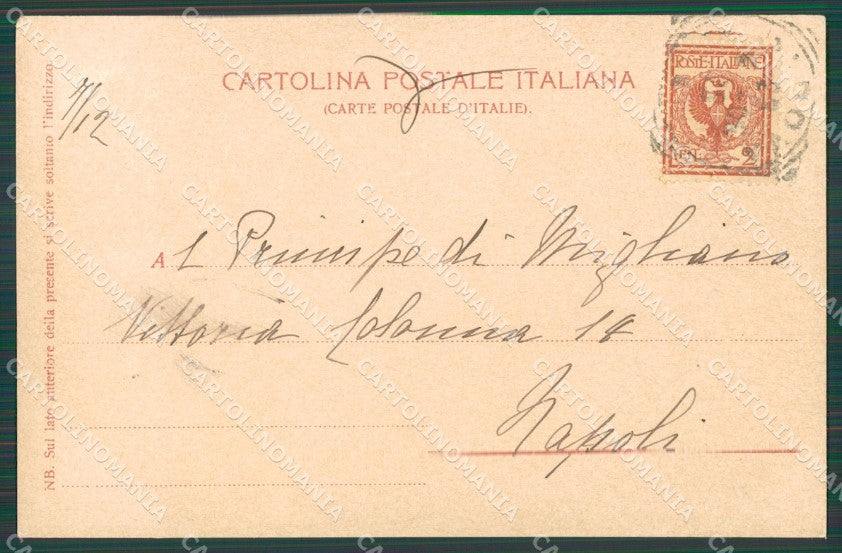 CARTOLINA POSTALE ITALIANA
(CARTE POSTALE D'ITALIE).
POSTE·ITALIANE
CEN. 2
NB. Sul lato anteriore della presente si scrive soltanto l'indirizzo.
7/12
Al Principe di Migliano
Vittoria Colonna 14
Napoli
CARTOLINOMANIA